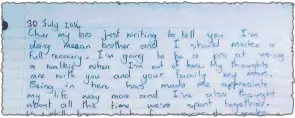 30 July 2016
my bro just writing to tell you I'm
doing mean brother and I should make a
full recovery. I'm going to be a pro at using
a walker when I'm out of here. My thoughts
are with you and your family my man.
Being in here has made me appreciate
my life way more and I've also thought
about all the time we've spent together.